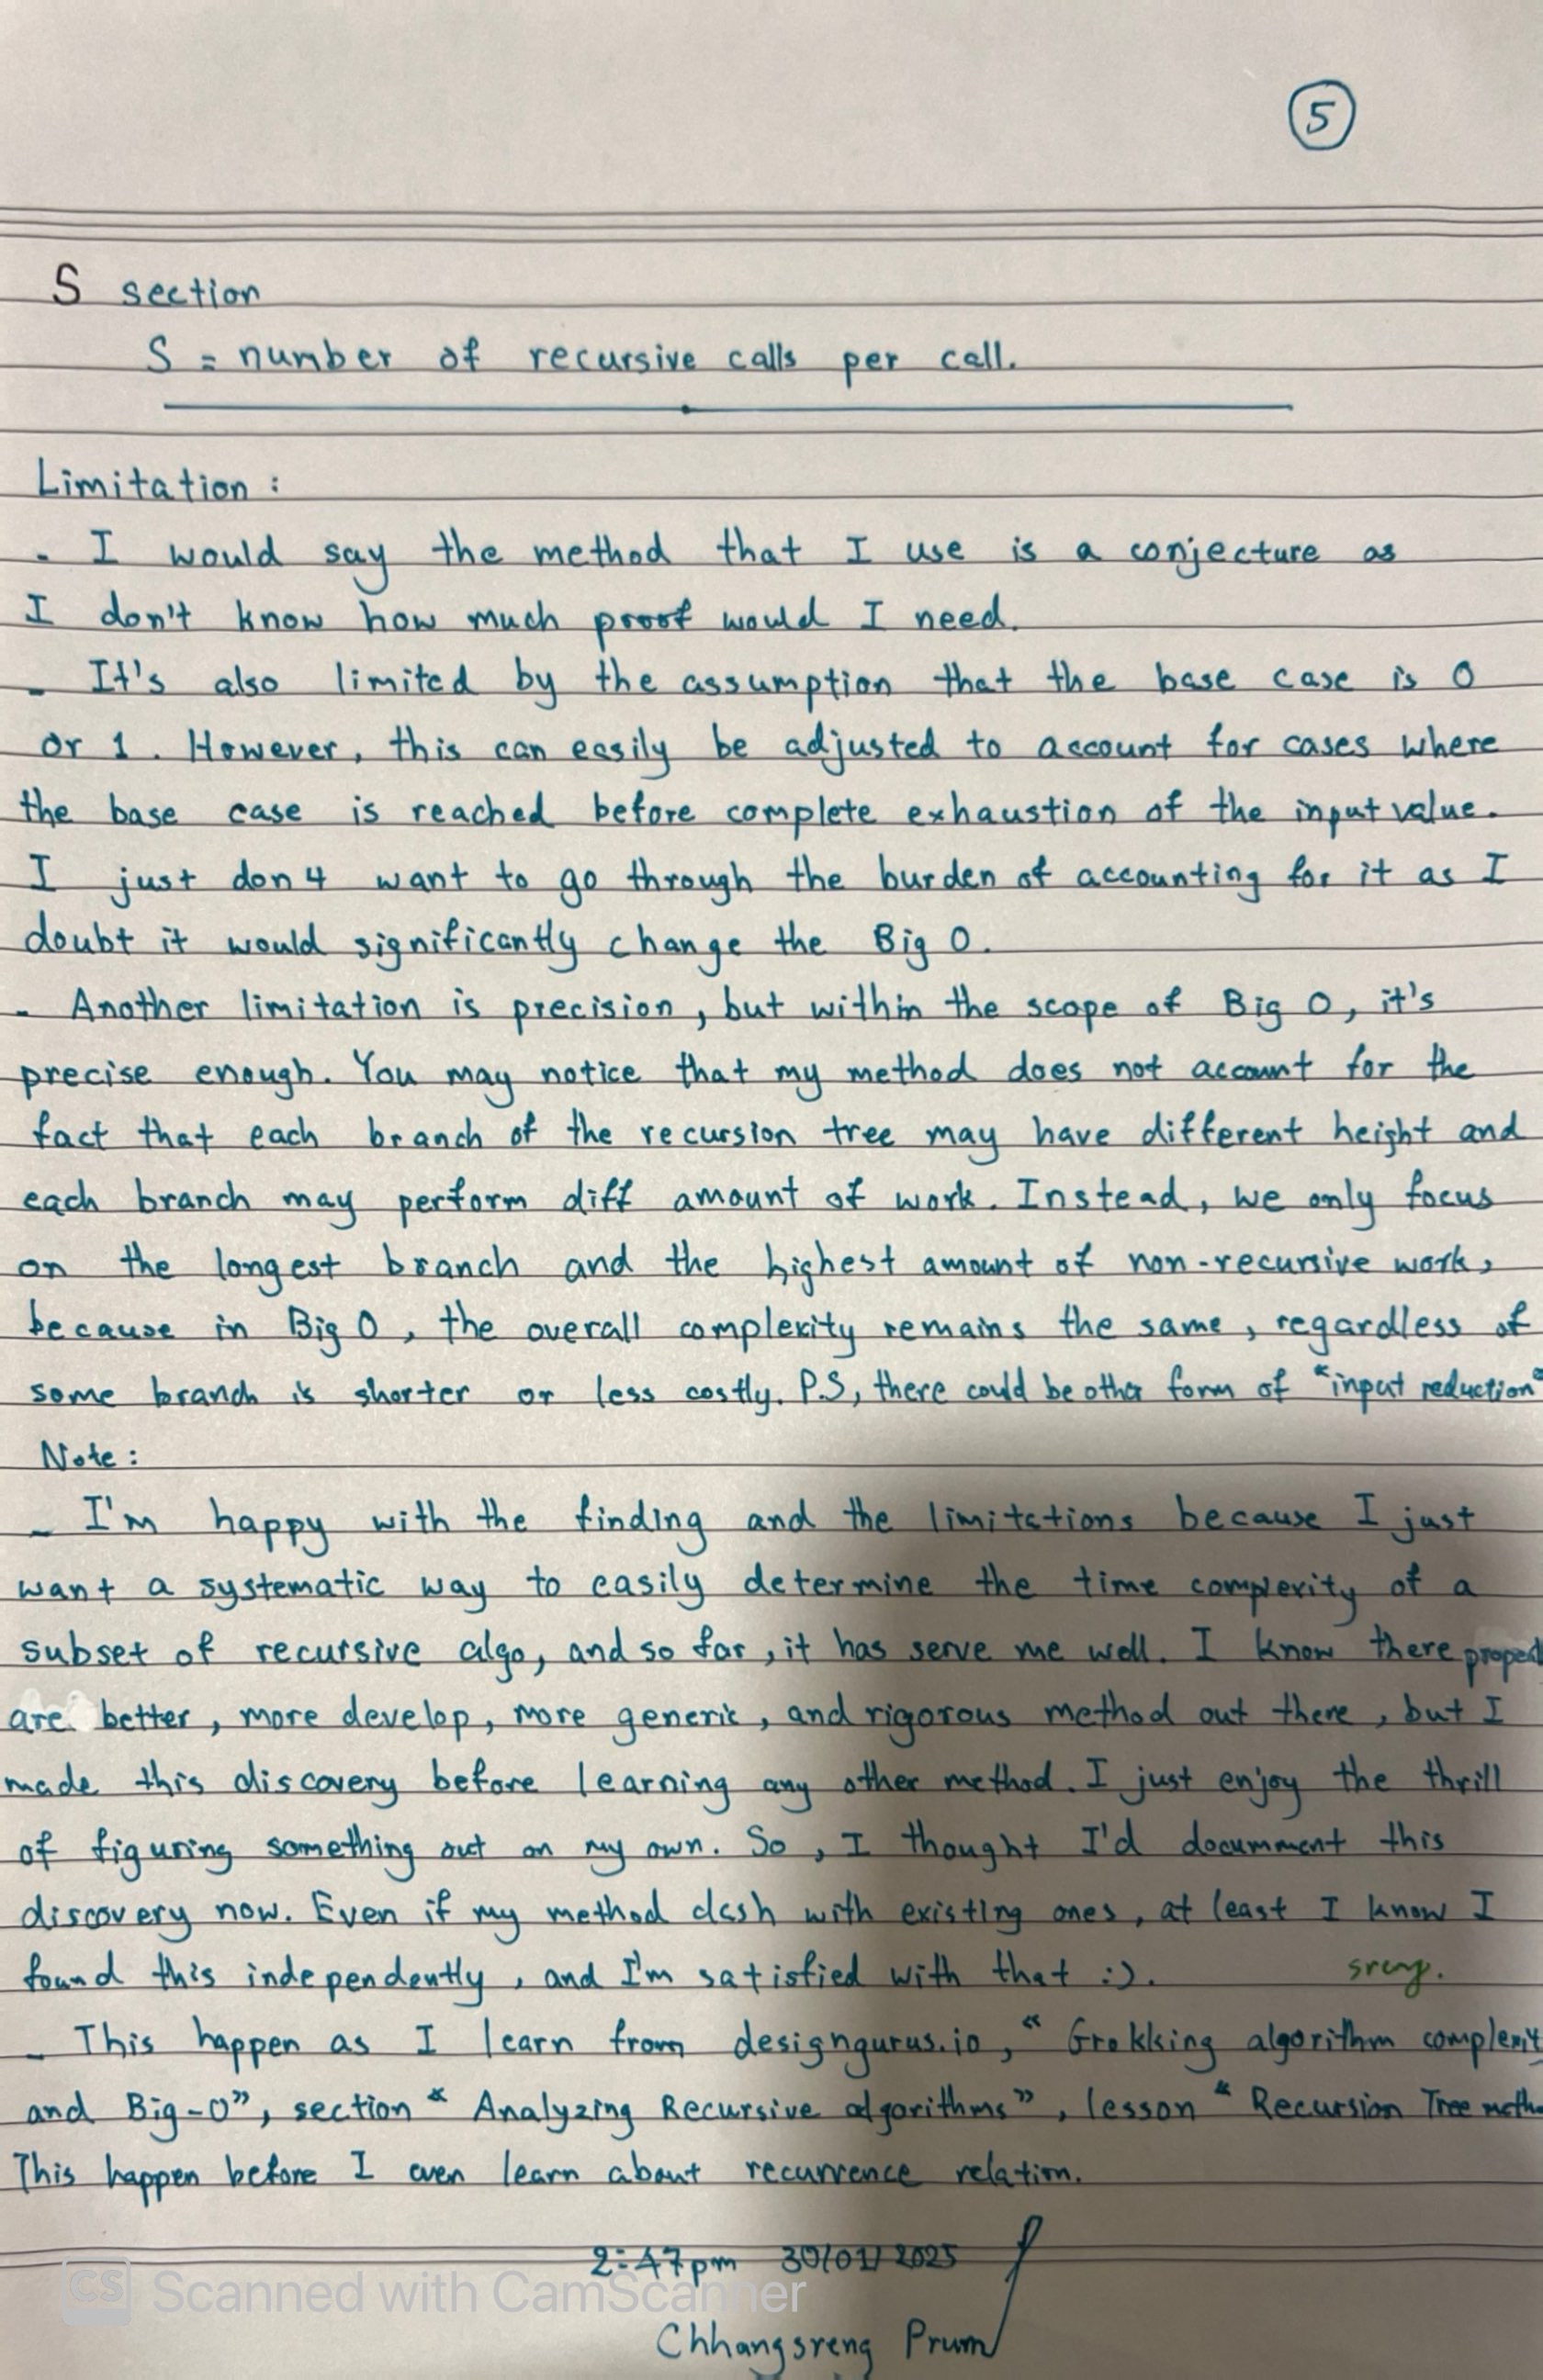 5
S section
S = number of recursive calls per call.
Limitation :
- I would say the method that I use is a conjecture as
I don't know how much proof would I need.
- It's also limited by the assumption that the base case is 0
or 1. However, this can easily be adjusted to account for cases where
the base case is reached before complete exhaustion of the input value.
I just don4 want to go through the burden of accounting for it as I
doubt it would significantly change the Big O.
- Another limitation is precision, but within the scope of Big O, it's
precise enough. You may notice that my method does not account for the
fact that each branch of the recursion tree may have different height and
each branch may perform diff amount of work. Instead, we only focus
on the longest branch and the highest amount of non-recursive work,
because in Big O, the overall complexity remains the same, regardless of
some branch is shorter or less costly. P.S, there could be other form of "input reduction"
Note :
- I'm happy with the finding and the limitations because I just
want a systematic way to easily determine the time complexity of a
subset of recursive algo, and so far, it has serve me well. I know there
are better, more develop, more generic, and rigorous method out there, but I
made this discovery before learning any other method. I just enjoy the thrill
of figuring something out on my own. So, I thought I'd documment this
discovery now. Even if my method clash with existing ones, at least I know I
found this independently, and I'm satisfied with that :).
- This happen as I learn from designgurus.io, "Grokking algorithm complexit
and Big-O", section "Analyzing Recursive algorithms", lesson "Recursion Tree meth
This happen before I even learn about recurrence relation.
2:47pm 30/01/2025
CS Scanned with CamScanner
Chhangsreng Prum